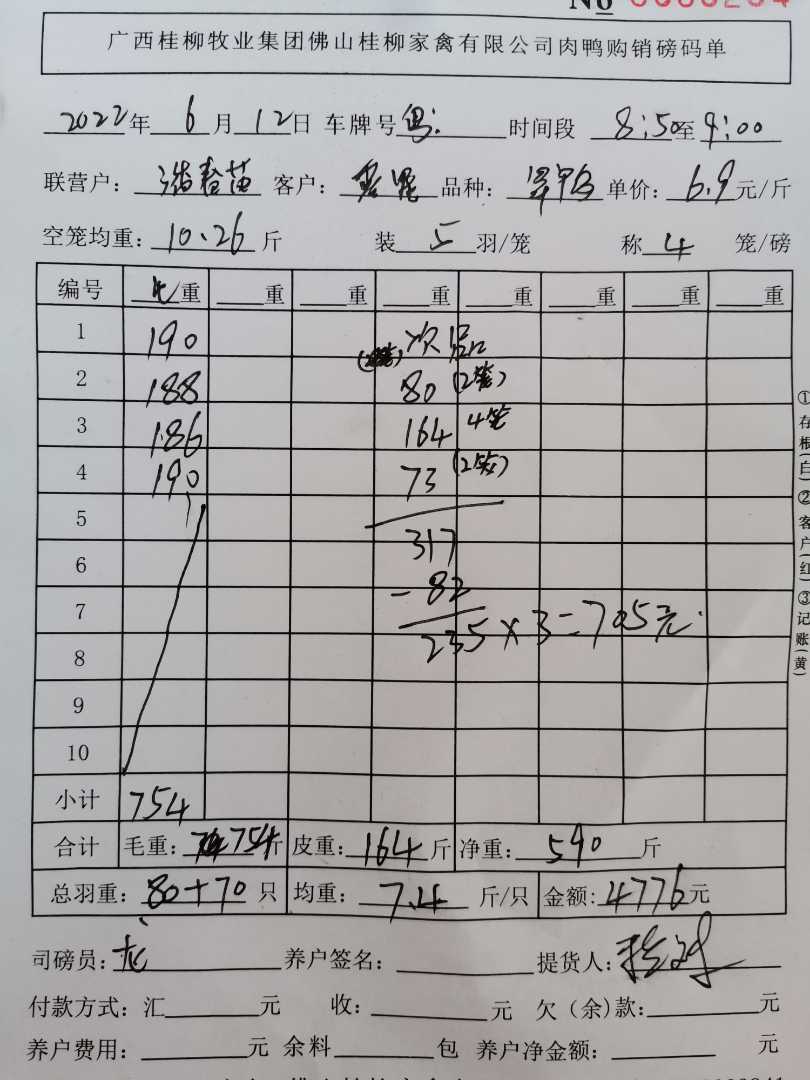 No 0000204
广西桂柳牧业集团佛山桂柳家禽有限公司肉鸭购销磅码单
2022年 6月 12日 车牌号 粤: 时间段 8:50至 9:00
联营户: 客户: 品种: 单价: 6.9元/斤
空笼均重: 10.26 斤 装 5 羽/笼 称 4 笼/磅
编号 重 重 重 重 重 重 重 重
1 190 次品
2 188 80 (2笼)
3 186 164 4笼
4 190 73 (2笼)
5
6 317
7 -82
8 235×3=705元.
9
10
小计 754
合计 毛重: 754斤 皮重: 164斤 净重: 590 斤
总羽重: 80+70 只 均重: 7.4 斤/只 金额: 4776元
司磅员: 养户签名: 提货人:
付款方式:汇 元 收: 元 欠(余)款: 元
养户费用: 元 余料 包 养户净金额: 元
①存根(白)②客户(红)③记账(黄)